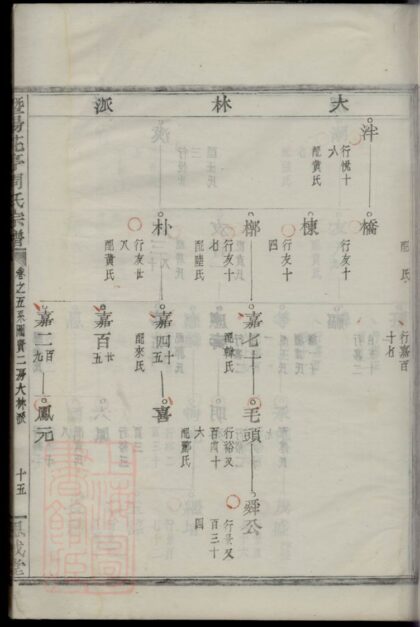 大林派
泮
行㤀十
六
配黃氏
橋
行友十
棟
行友十
四
梆
行友十
七
配陸氏
朴
行友廿
八
配黃氏
行嘉百
十七
嘉七十
配韓氏
嘉四十五
配來氏
嘉百廿五
嘉二百九
毛頭
行裕又
百丙十
六
配鄭氏
喜
鳳元
舜公
行景又
百三十
四
暨陽花亭周氏宗譜
卷之五系圖賢二房大林派
十五